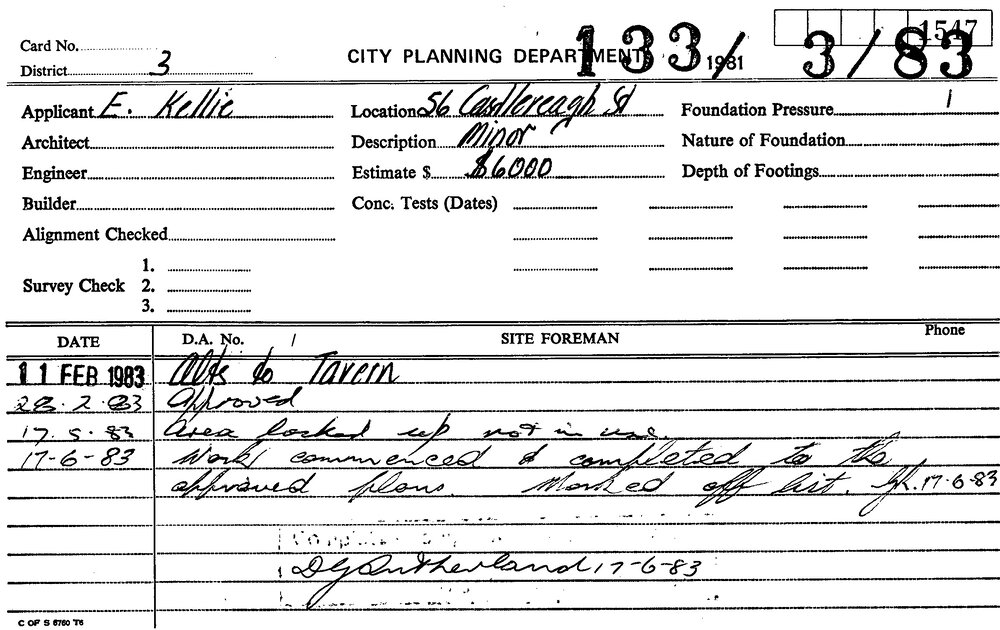 1547
Card No.
District 3
CITY PLANNING DEPARTMENT 1981
133/ 3/83
Applicant E. Kellie
Location 56 Castlereagh St
Foundation Pressure
Architect
Description Minor
Nature of Foundation
Engineer
Estimate $ $6000
Depth of Footings
Builder
Conc. Tests (Dates)
Alignment Checked
1.
Survey Check 2.
3.
DATE D.A. No. SITE FOREMAN Phone
11 FEB 1983 Alts to Tavern
28.2.83 Approved
17.5.83 Area locked up not in use.
17-6-83 Work commenced & completed to the
approved plans. Marked off list. 17-6-83
DG Sutherland 17-6-83
C OF S 6760 T6